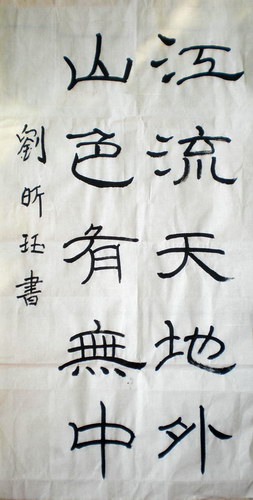 江流天地外
山色有無中
劉昕珏書